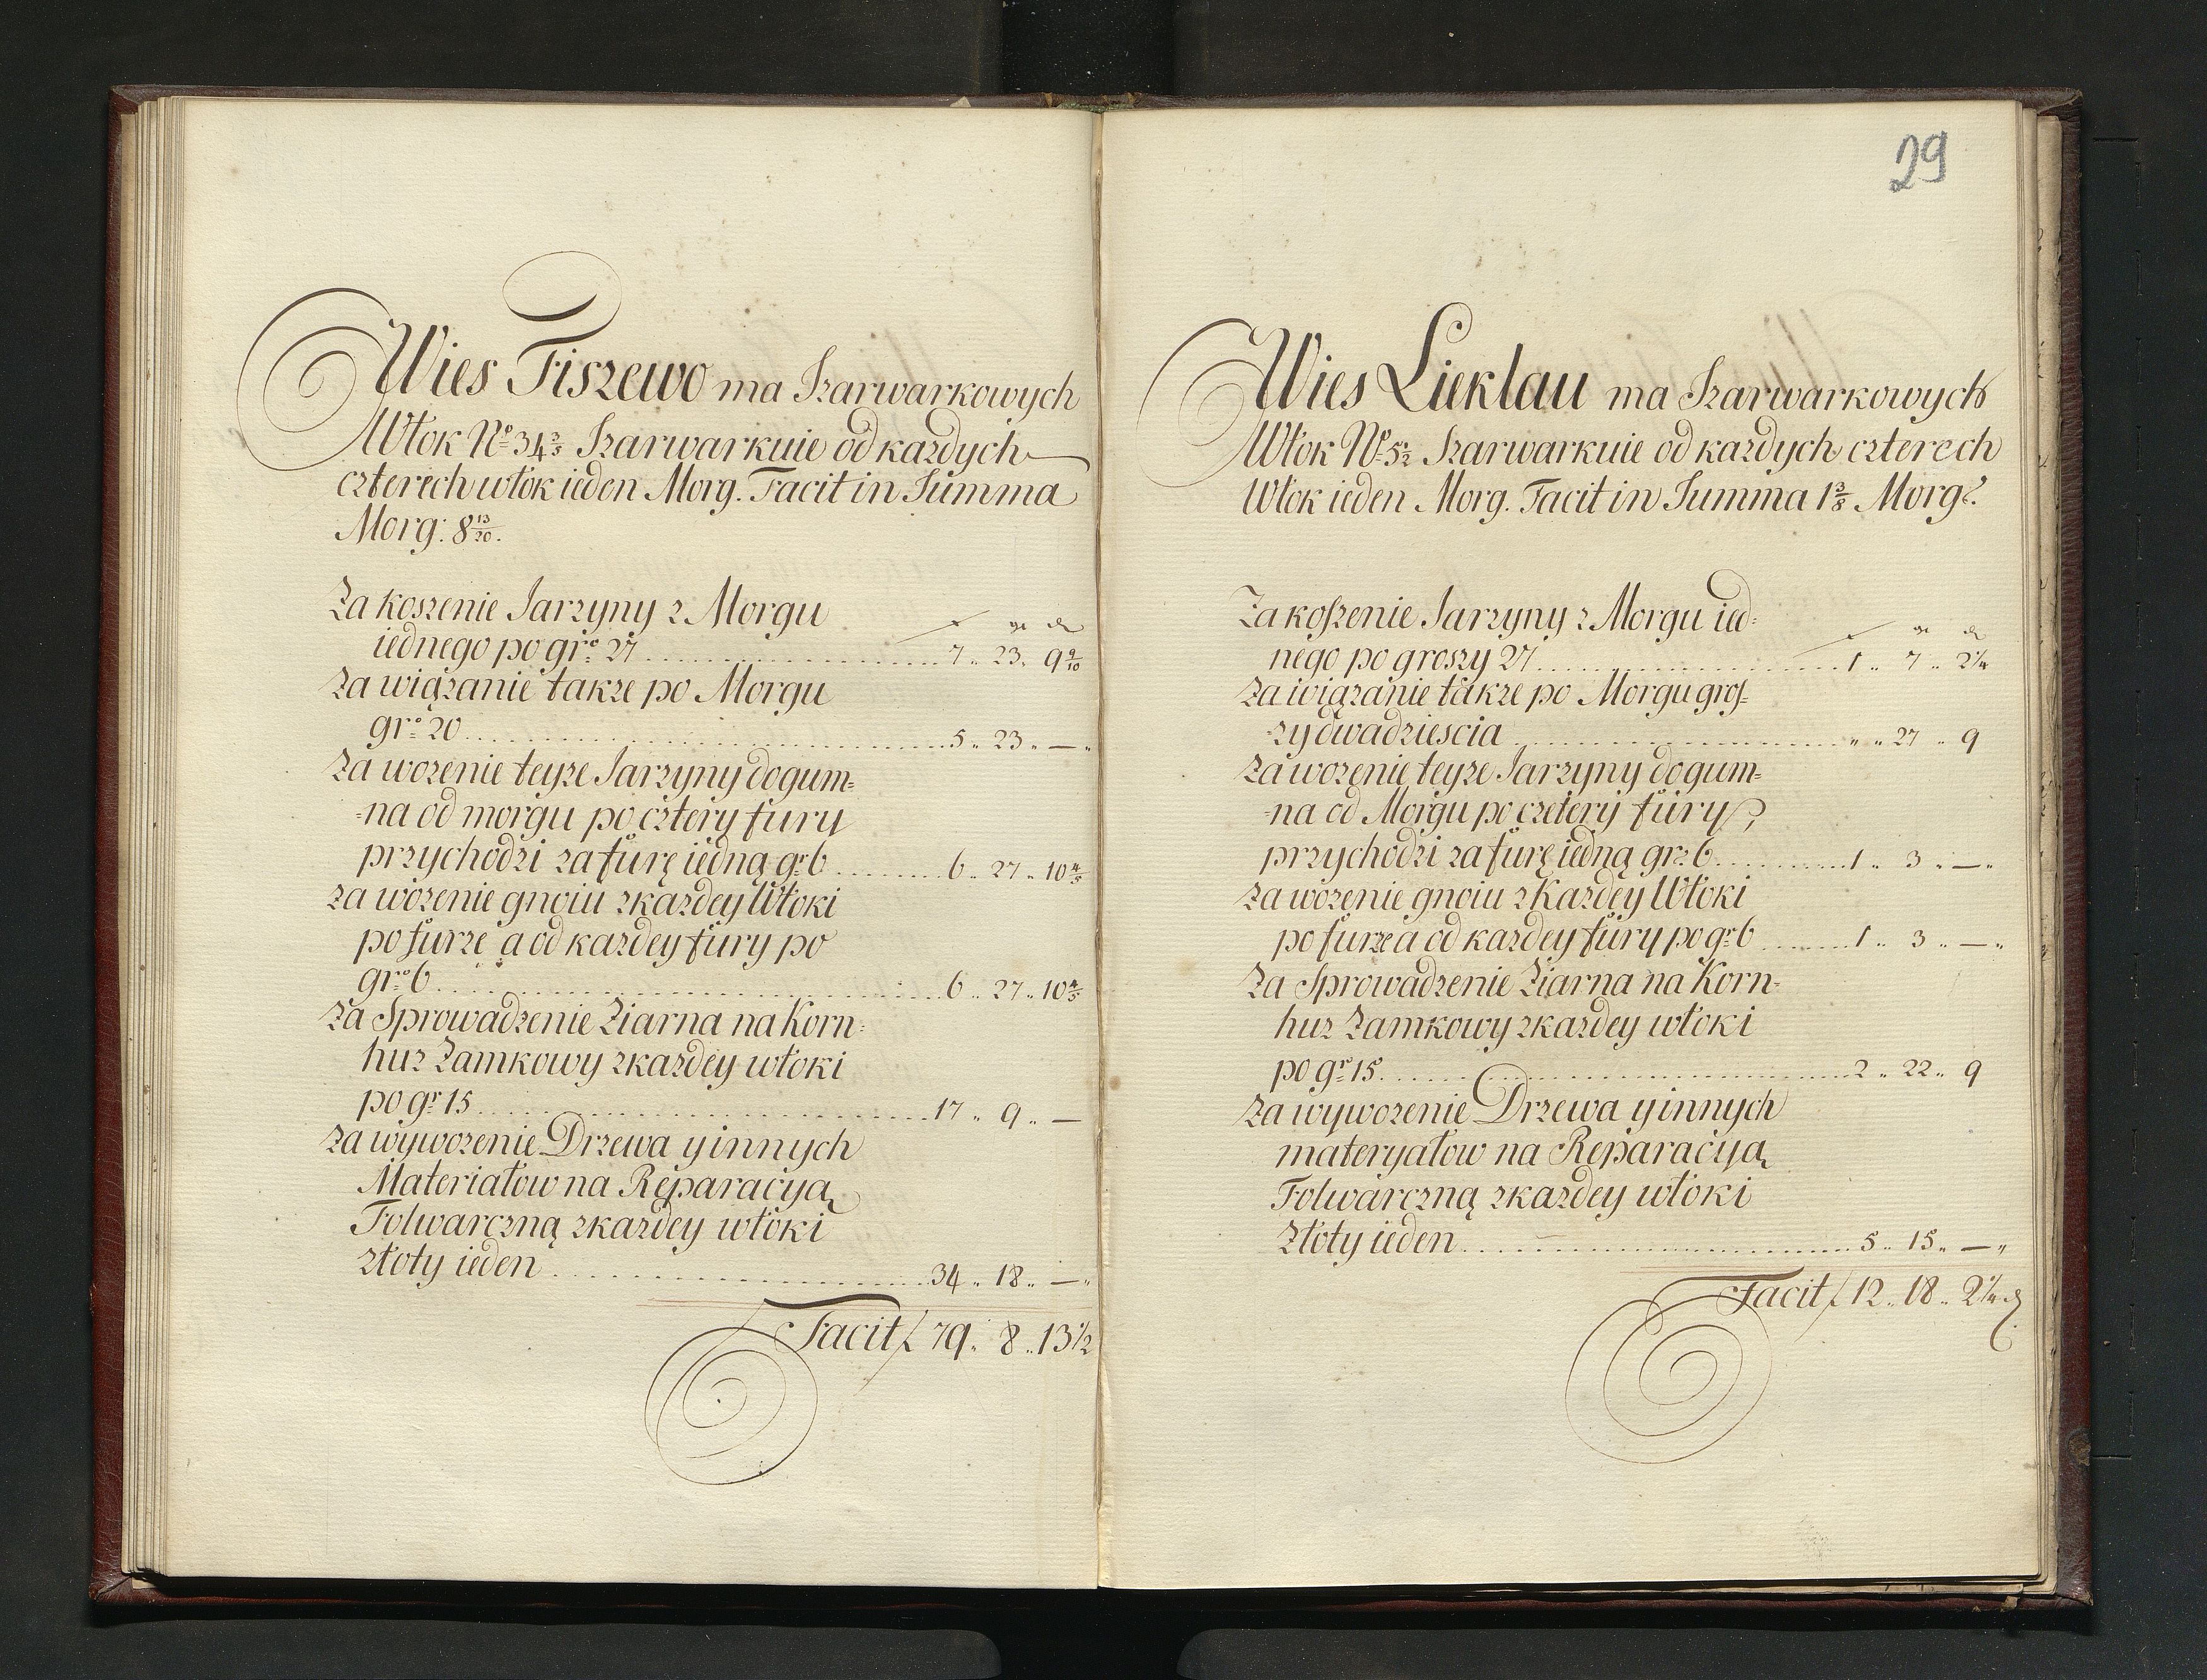 Wies Fiszewo ma Szarwarkowych
Włok No 34 3/5 Szarwarkuie od kazdych
czterech włok ieden Morg. Facit in Summa
Morg: 8 13/20.
Za koszenie Jarzyny z Morgu
iednego po gro: 27 7 „ 23 „ 9 9/10
Za wiązanie takze po Morgu
gro: 20 5 „ 23 „ — „
Za wozenie teyze Jarzyny do gum=
=na od morgu po cztery fury
przychodzi za furę iedną gr: 6 6 „ 27 „ 10 4/5
Za wozenie gnoiu z kazdey Włoki
po furze a od kazdey fury po
gro: 6 6 „ 27 „ 10 4/5
Za Sprowadzenie Ziarna na Korn=
huz Zamkowy z kazdey włoki
po gr: 15 17 „ 9 „ —
Za wywozenie Drzewa y innych
Materiałow na Reparacyą
Folwarczną z kazdey włoki
złoty ieden 34 „ 18 „ — „
Facit f 79 „ 8 „ 13 1/2
29
Wies Lieklau ma Szarwarkowych
Włok No 5 1/2 Szarwarkuie od kazdych czterech
Włok ieden Morg. Facit in Summa 1 3/8 Morg.
Za koszenie Jarzyny z Morgu ied=
nego po groszy 27 1 „ 7 „ 2 1/4
Za wiązanie takze po Morgu gros=
zy dwadziescia „ „ 27 „ 9
Za wozenie teyze Jarzyny do gum=
=na od Morgu po cztery fury
przychodzi za furę iedną gr: 6 1 „ 3 „ — „
Za wozenie gnoiu z Kazdey Włoki
po furze a od kazdey fury po gr: 6 1 „ 3 „ — „
Za Sprowadzenie Ziarna na Korn=
huz Zamkowy z kazdey włoki
po gr: 15 2 „ 22 „ 9
Za wywozenie Drzewa y innych
materyałow na Reparacyą
Folwarczną z kazdey włoki
Złoty ieden 5 „ 15 „ — „
Facit f 12 „ 18 „ 2 1/4 d